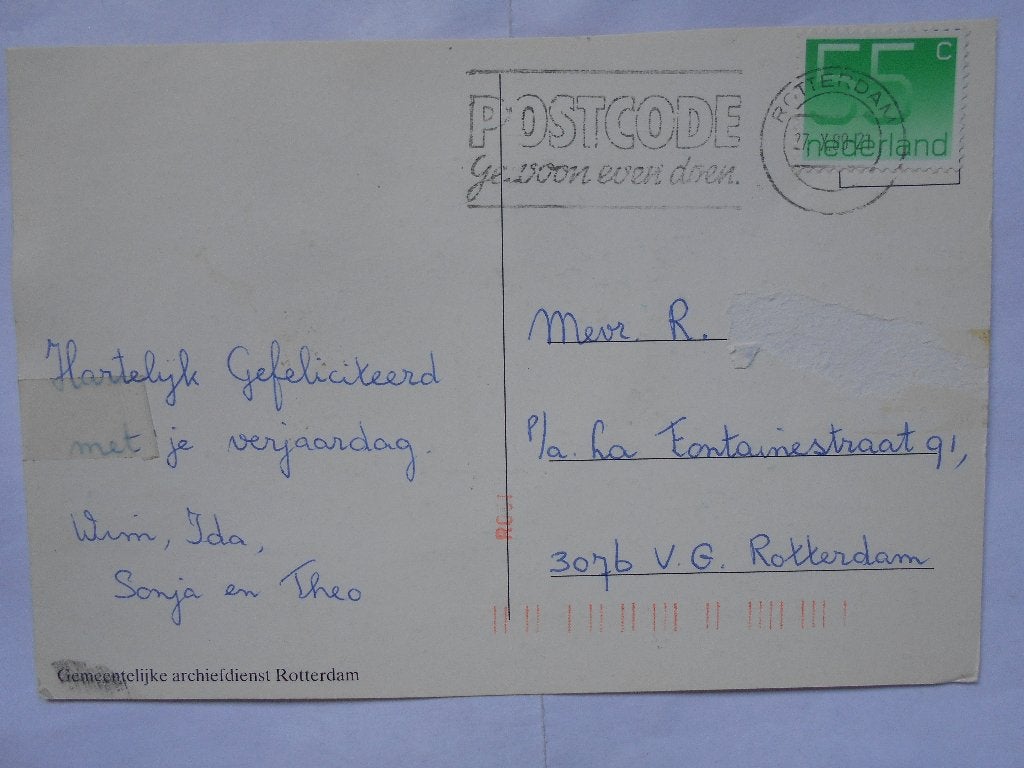 POSTCODE
Gewoon even doen.
55 c
nederland
ROTTERDAM
Hartelijk Gefeliciteerd
met je verjaardag.
Wim, Ida,
Sonja en Theo
Mevr. R.
P/a. La Fontainestraat 91,
3076 V.G. Rotterdam
Gemeentelijke archiefdienst Rotterdam